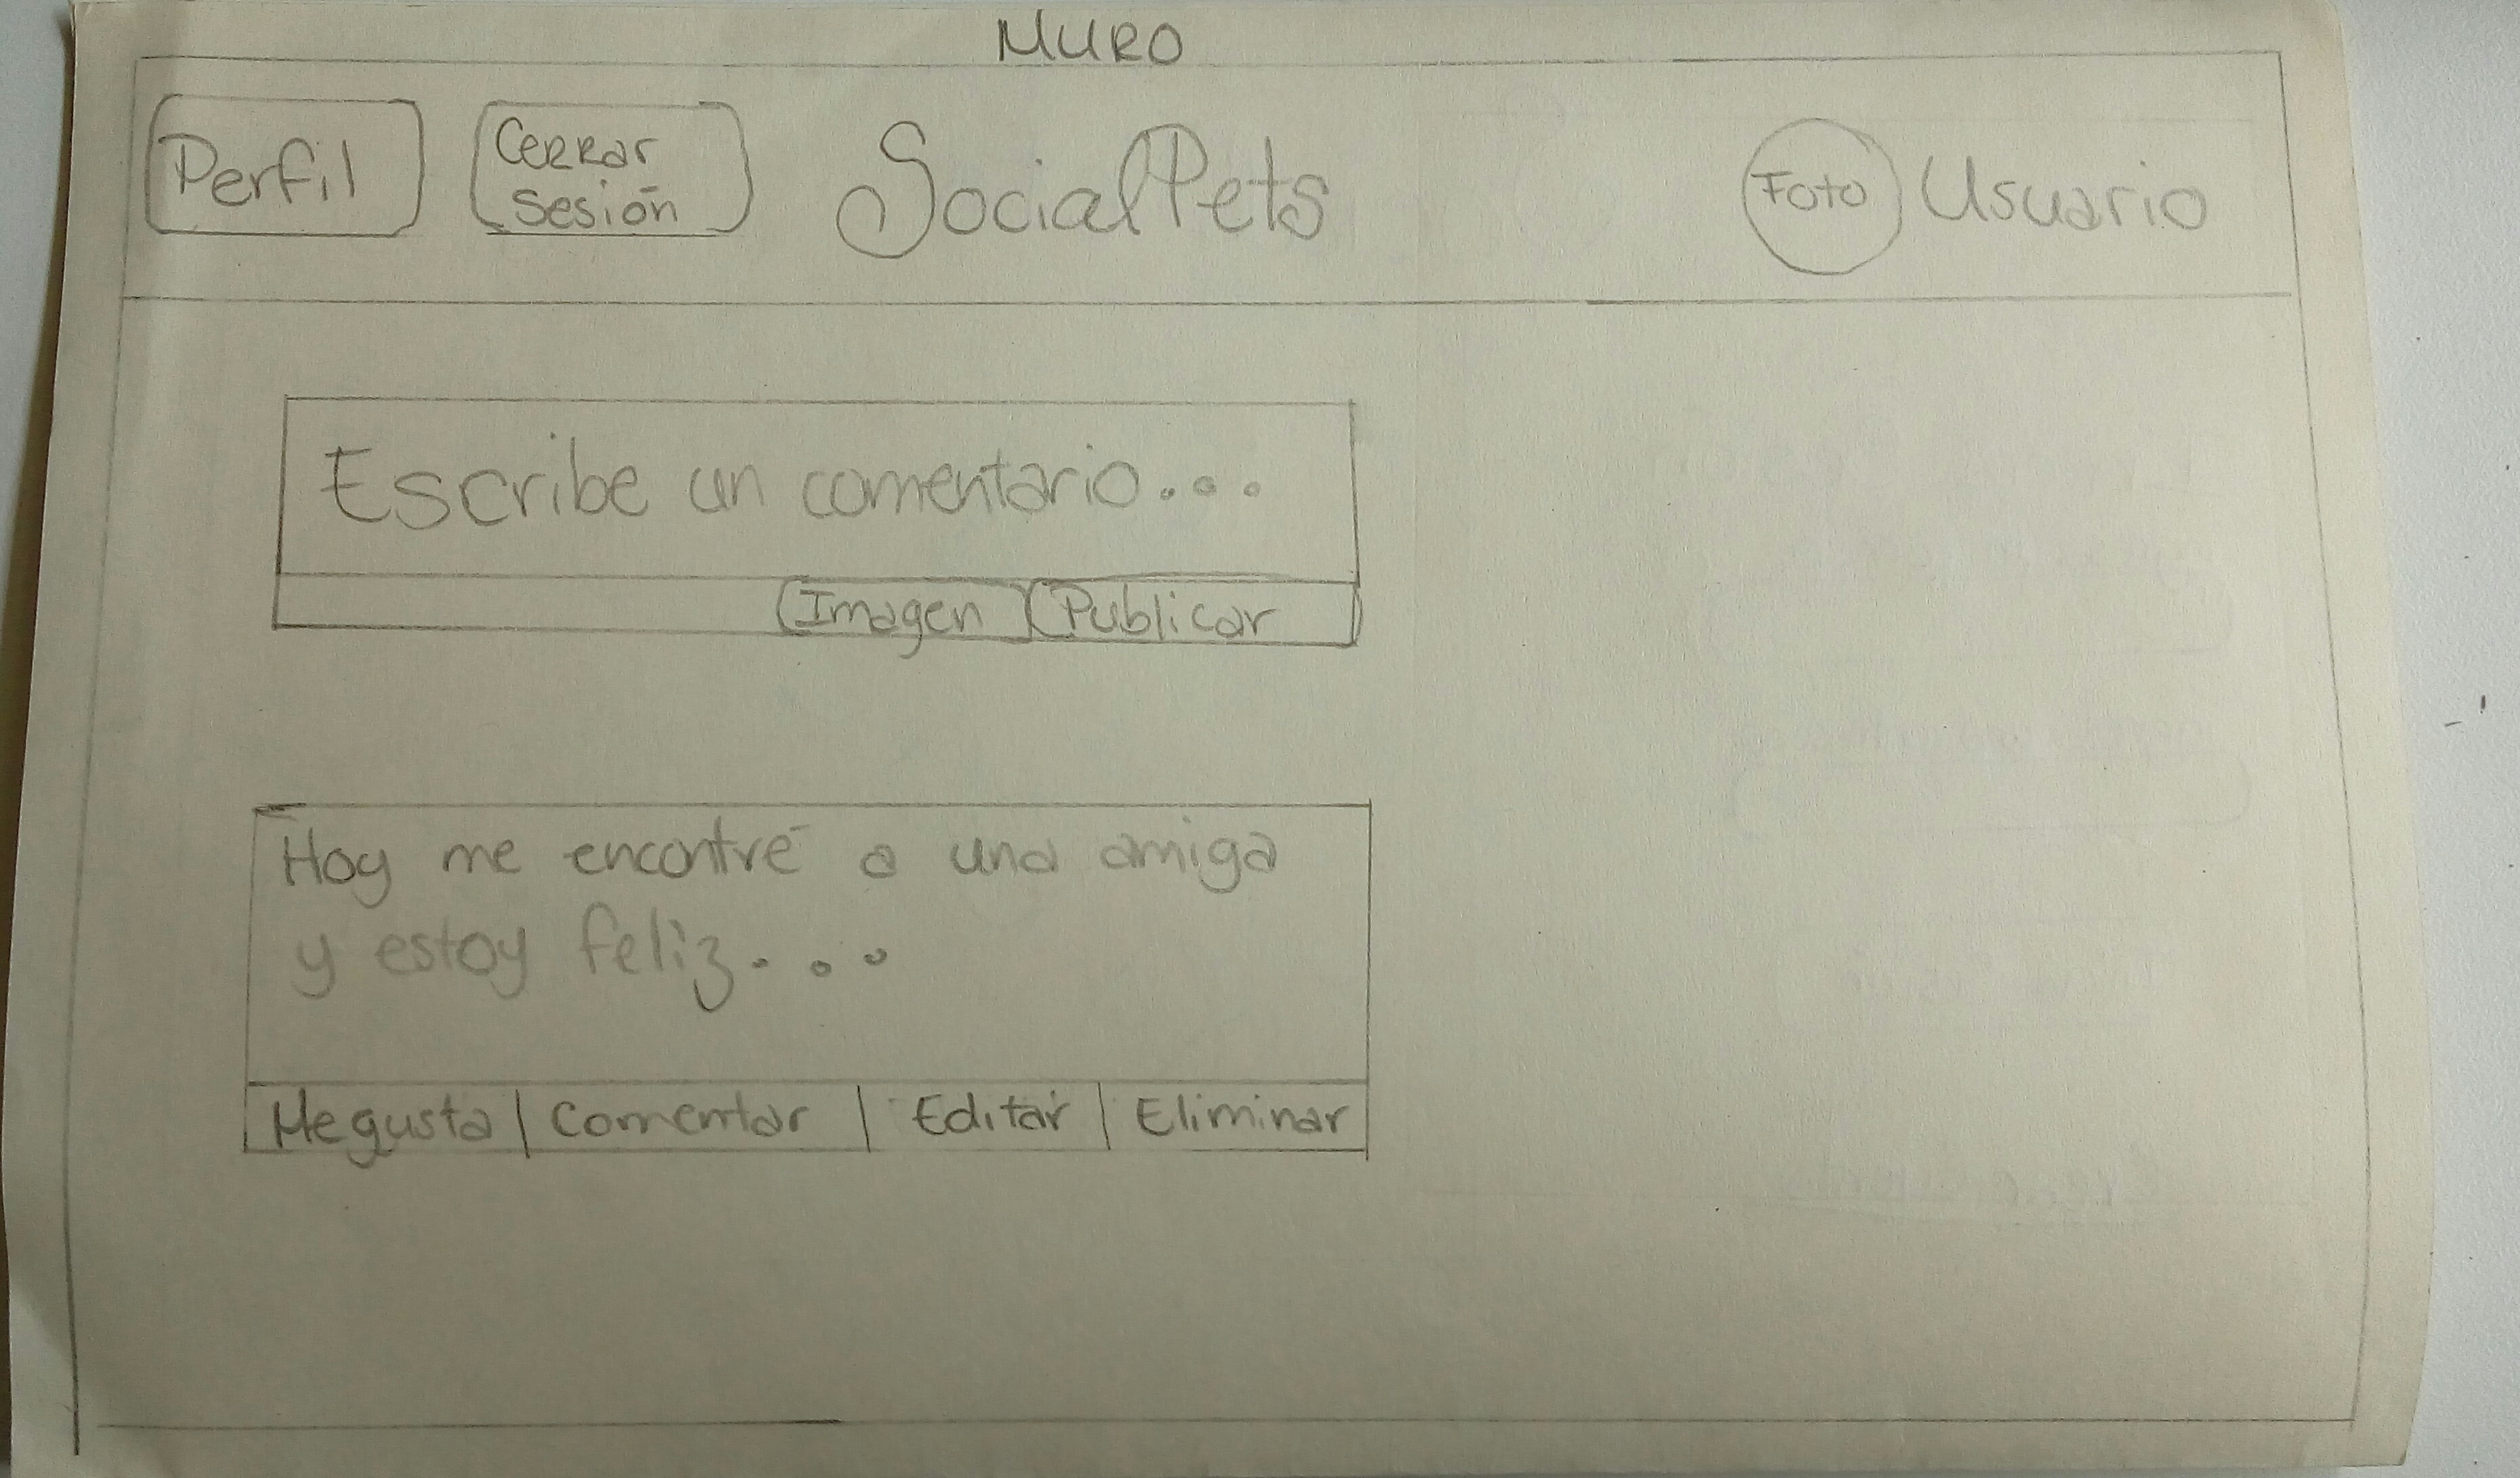 MURO
Perfil
Cerrar
sesión
SocialPets
Foto
Usuario
Escribe un comentario...
Imagen
Publicar
Hoy me encontré a una amiga
y estoy feliz...
Me gusta | Comentar | Editar | Eliminar